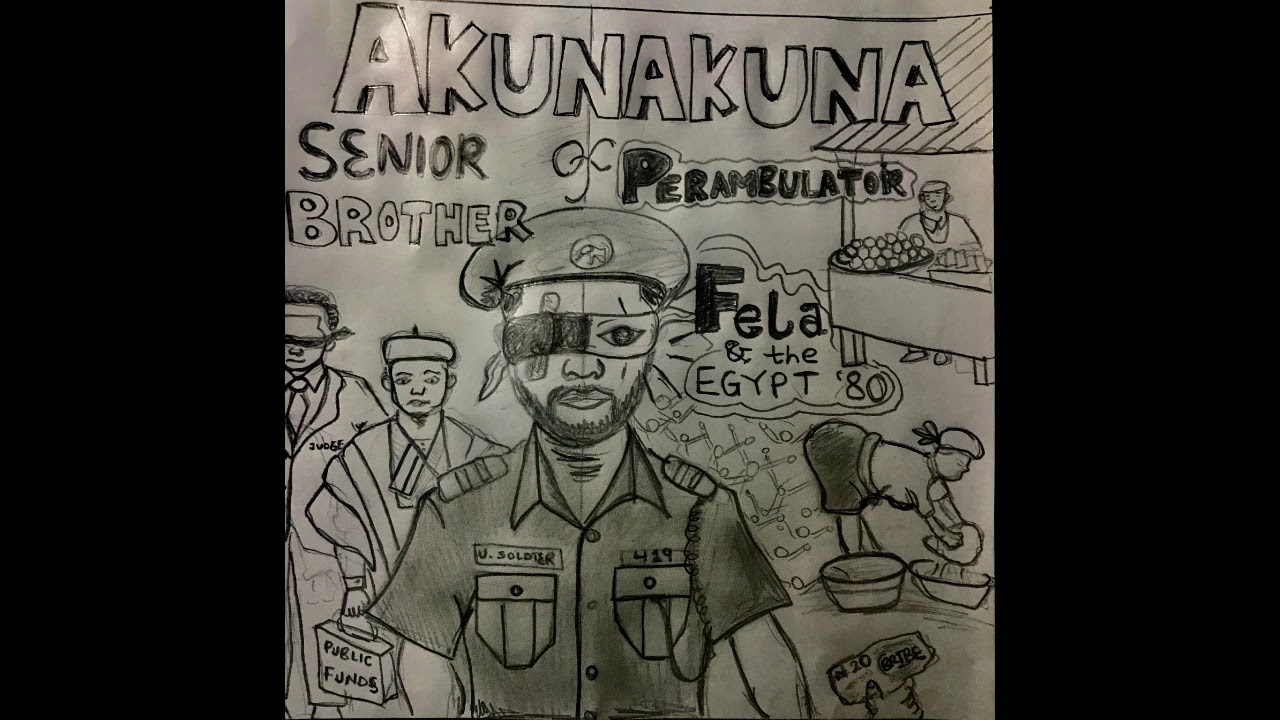 AKUNAKUNA
SENIOR
BROTHER
of PERAMBULATOR
Fela
& the
EGYPT '80
JUDGE
U. SOLDIER
419
PUBLIC
FUNDS
₦20 BRIBE